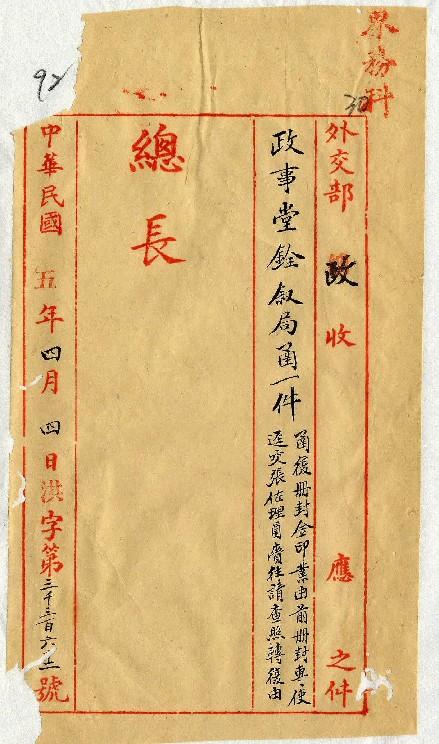 界務科
30
外交部 政 收 應 之件
政事堂銓叙局函一件
函復册封金印業由前册封專使
逕交張佐理員賫往請查照轉復由
總長
中華民國 五年 四月 四日 洪字第三千三百六十五號
92